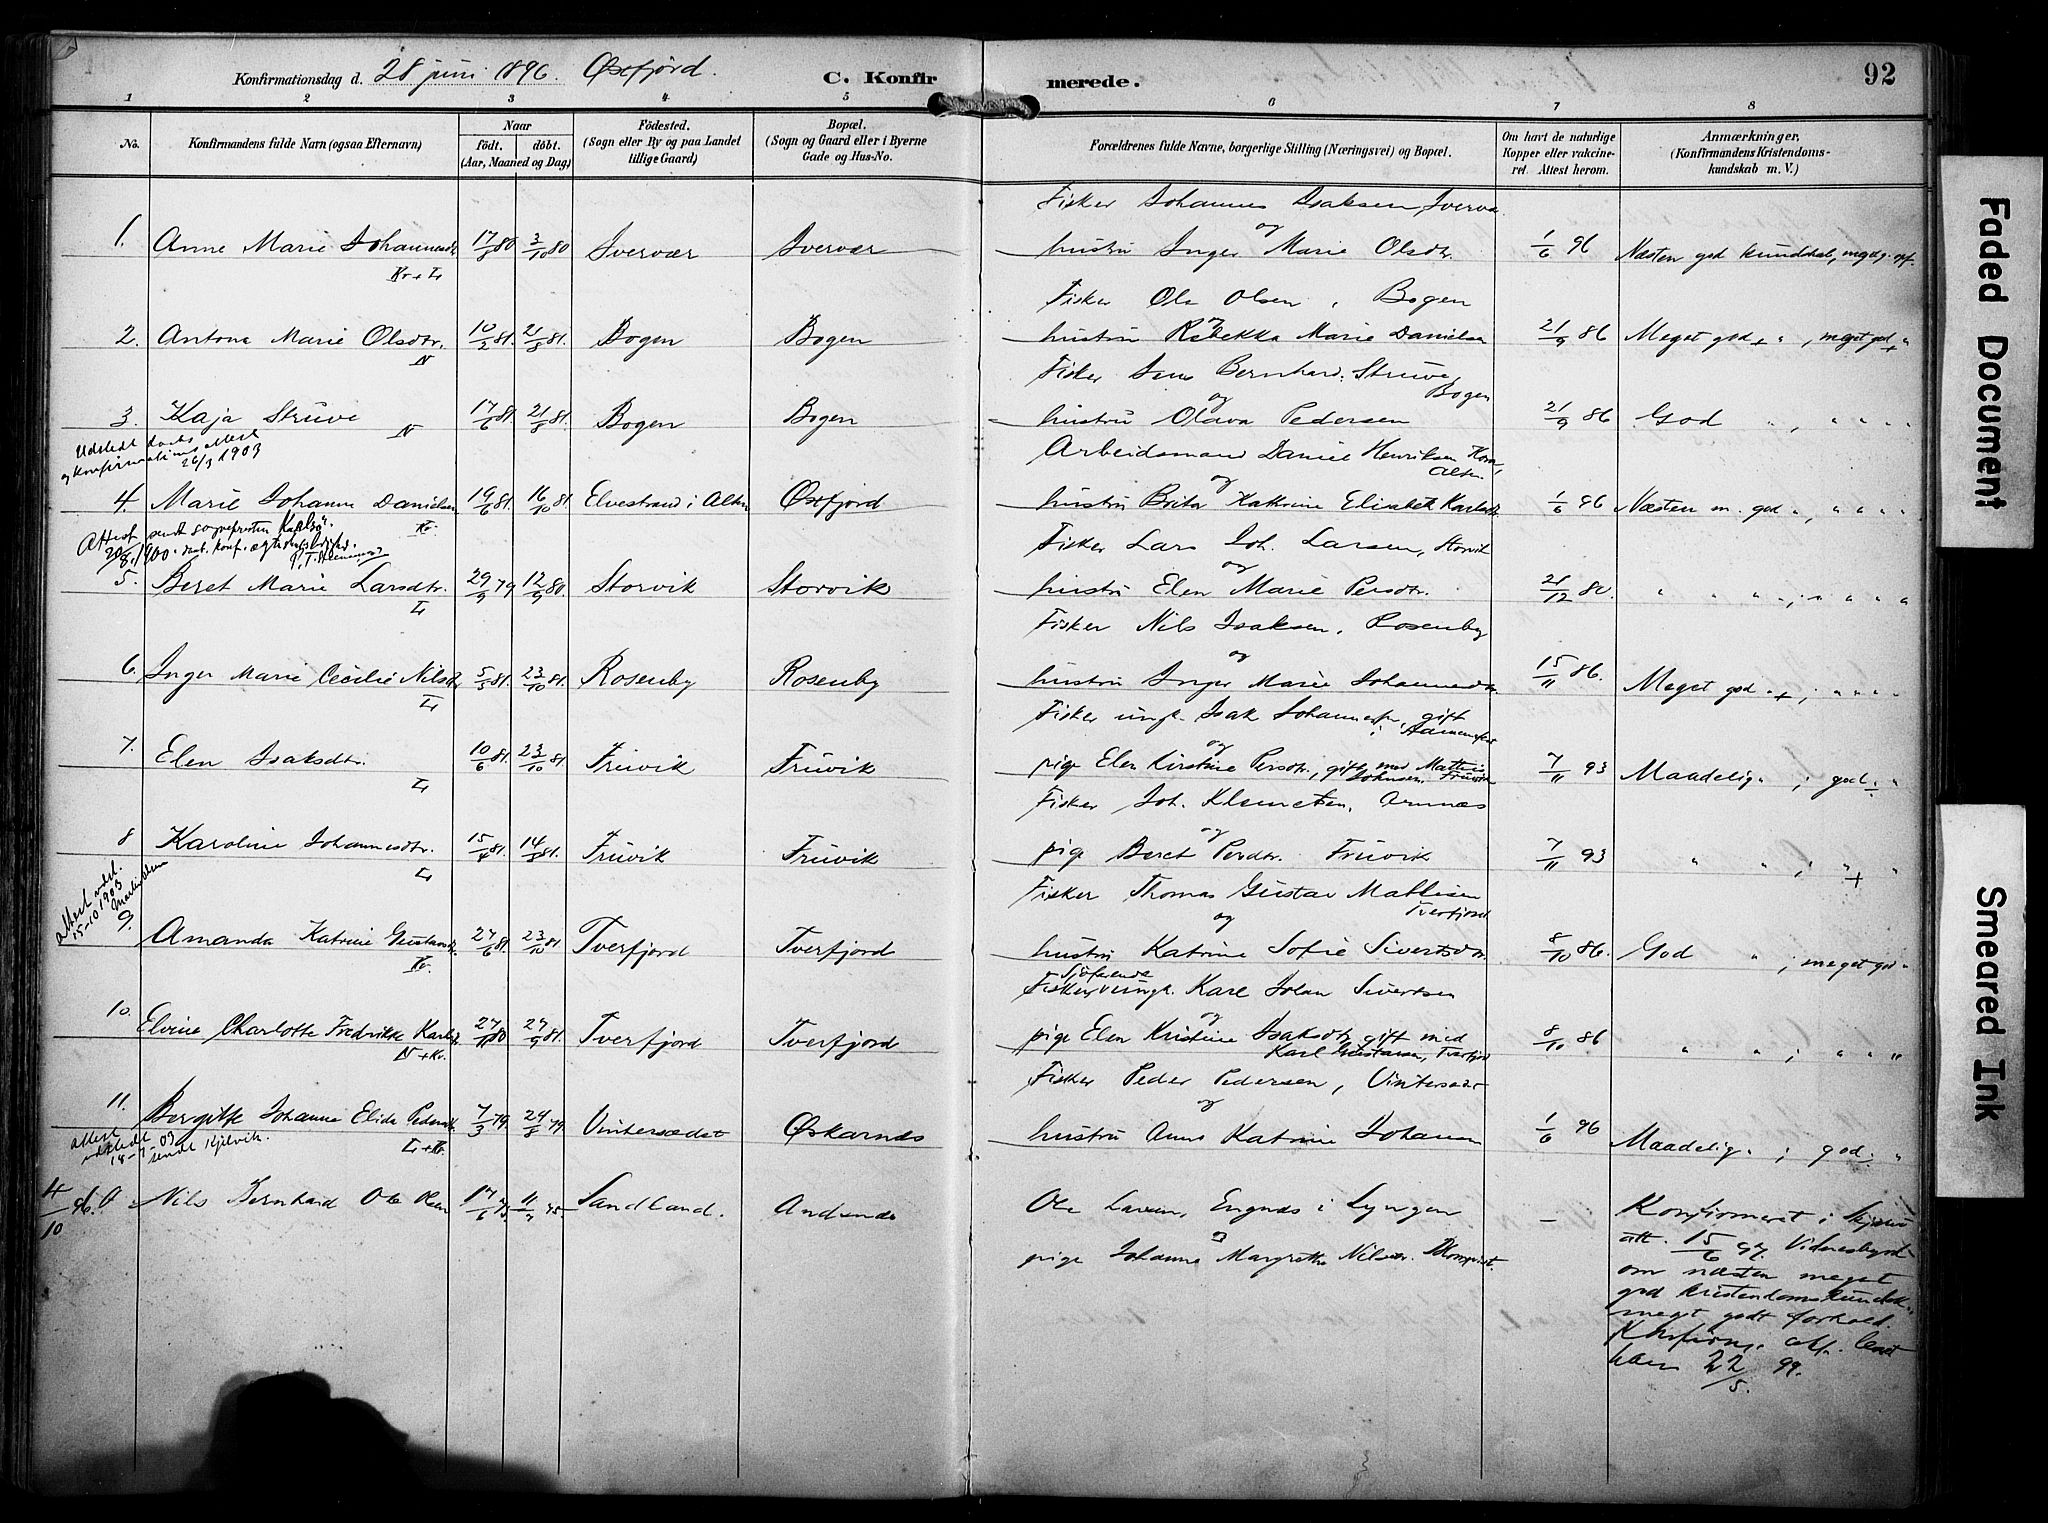 Konfirmationsdag d. 28 juni 1896. Øxfjord. C. Konfirmerede. 92
1 2 3 4 5 6 7 8
No. Konfirmandens fulde Navn (ogsaa Efternavn) Naar født. døbt. (Aar, Maaned og Dag) Fødested. (Sogn eller By og paa Landet tillige Gaard) Bopæl. (Sogn og Gaard eller i Byerne Gade og Hus-No. Forældrenes fulde Navne, borgerlige Stilling (Næringsvei) og Bopæl. Om havt de naturlige Kopper eller vakcineret. Attest herom. Anmærkninger, (Konfirmandens Kristendomskundskab m. V.)
Fisker Johannes Isaksen,
og
1. Anne Marie Johannesdtr. 17/8 80 3/10 80 Ivervær Ivervær hustru Inger Marie Olsdtr. 1/6 96 Næsten god kundskab,
Kv + L
Fisker Ole Olsen, Bogen
og
2. Antona Marie Olsdtr. 10/2 81. 21/8 81. Bogen Bogen hustru Rebekka Marie Danielsen 21/9 86 Meget god + " , meget god + "
N
Fisker Jens Bernhard Struve,
Bogen
og
3. Kaja Struve 17/6 81. 21/8 81. Bogen Bogen hustru Olava Pedersen 21/9 86 God " , " " "
N
Udstedt daabs
og konfirmations attest
26/3 1903
Arbeidsmand Daniel Henriksen
Alten
og
4. Marie Johanne Danielsen 19/6 81. 16/10 81. Elvestrand i Alten Øxfjord hustru Brita Kathrine Elisabeth Karlsdtr. 1/6 96 Næsten m. god " , " " "
Kv.
Attest sendt sognepresten Karlsø
20/8. 1900.
Fisker Lars Joh. Larsen, Storvik
og
5. Beret Marie Larsdtr. 29/9 79 12/9 80. Storvik Storvik hustru Elen Marie Persdtr. 21/12 80. " " " " , " " " "
L
Fisker Nils Isaksen, Rosenby
og
6. Inger Marie Cecilie Nilsdtr. 5/5 81. 23/10 81. Rosenby Rosenby hustru Inger Marie Johannesdtr. 15/11 86. Meget god " + ; " " "
L
Fisker ungk. Isak Johannessen, gift
i Hammerfest
og
7. Elen Isaksdtr. 10/6 81. 23/10 81. Fruvik Fruvik pige Elen Kirstine Persdtr., gift med Mathis
Johnsen Fruvik 7/11 93 Maadelig " ; god ÷ "
L
Fisker Joh. Klemetsen, Arnnæs
og
8 Karoline Johannesdtr. 15/4 81. 14/8 81. Fruvik Fruvik pige Beret Persdtr. Fruvik 7/11 93 " " ; " + "
L
Attest udst.
15-10 1903
Fisker Thomas Gustav Mathisen
Tverfjord
og
9. Amanda Katrine Gustavsdtr. 27/6 81. 23/10 81. Tverfjord Tverfjord hustru Katrine Sofie Sivertsdtr. 8/10 86. God " ; meget god "
Kv.
Sjøfarende
Fisker, ungk. Karl Johan Sivertsen
og
10. Elvine Charlotte Fredrikke Karlsdtr. 27/11 80 27/9 81. Tverfjord Tverfjord pige Elen Kristine Isaksdtr. gift med
Karl Gustavsen, Tverfjord 8/10 86 " " ; " " "
N + Kv.
Fisker Peder Pedersen, Vintersæt
og
11. Bergitte Johanne Elida Pedersdtr. 7/3 79. 24/8 79. Vintersædet Øskarnæs hustru Anne Katrine Johansen 1/6 96 Maadelig " ; god ÷ "
L + Kv.
attest
udstedt
18-7-03
sendt Kjelvik.
4/10 96. Nils Bernhard Ole Olsen 17/6 75 11/7 75. Sandland. Andsnæs Ole Larsen, Engnæs i Lyngen — Konfirmeret i Skjærvø
og
pige Johanne Margrethe Nilsdtr.
15/6 97. Vidnesbyrd
om næsten meget
god kristendomskundsk.
meget godt forhold.
Konfirm. att.
ham 22/5. 99.
Faded Document
Smeared Ink